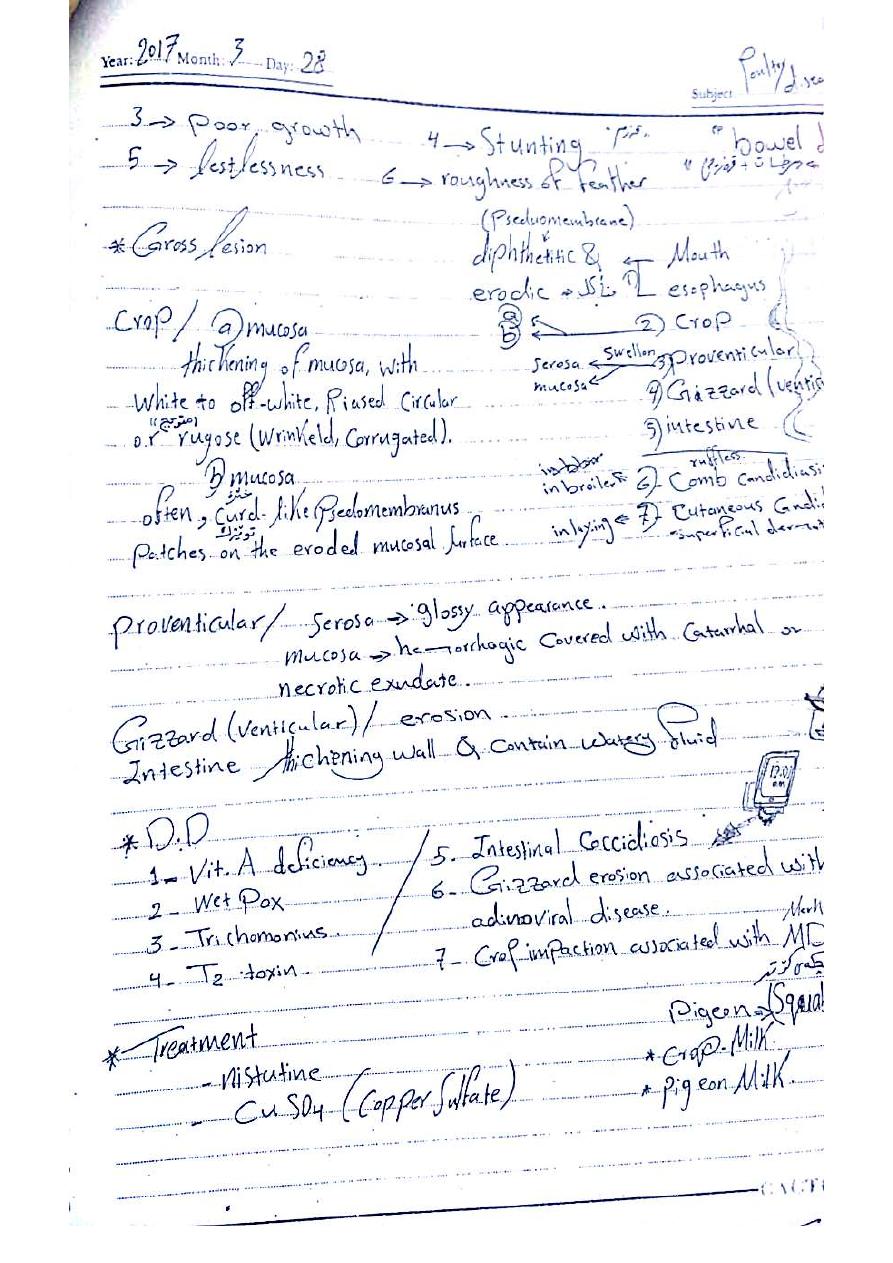 Year: 2017 Month: 3 Day: 28
Subject Poultry disea
3 → poor growth
4 → Stunting
bowel d
5 → lestlessness
6 → roughness of feather
* Gross lesion
(Pseduomembrane)
diphthetitic &
erodic →
1) Mouth
esophagus
a
b
2) Crop
Crop / a) mucosa
thickening of mucosa, with
White to off-white, Riased Circular
or rugose (wrinkeld, Corrugated).
serosa ← Swellon 3) Proventicular
mucosa
4) Gizzard (ventic
5) intestine
b) mucosa
often, curd-like Psedomembranus
Patches on the eroded mucosal surface
in broilers 6) Comb candidiasi
in laying ← 7) Cutaneous Candi
superficial dermat
Proventicular / serosa → glossy appearance.
mucosa → hemorrhagic Covered with Catarrhal or
necrotic exudate.
Gizzard (venticular) / erosion
Intestine thichening wall & contain watery fluid
12:00
a.m
* D.D
1- Vit. A deficiency
2- Wet Pox
3- Trichomonius
4- T2 toxin
5- Intestinal Coccidiosis
6- Gizzard erosion associated with
adinoviral disease.
7- Crop impaction associated with MD
* Treatment
- Nistutine
- CuSO4 (Copper Sulfate)
Pigeon → Squa
* Crop-Milk
* Pigeon Milk.